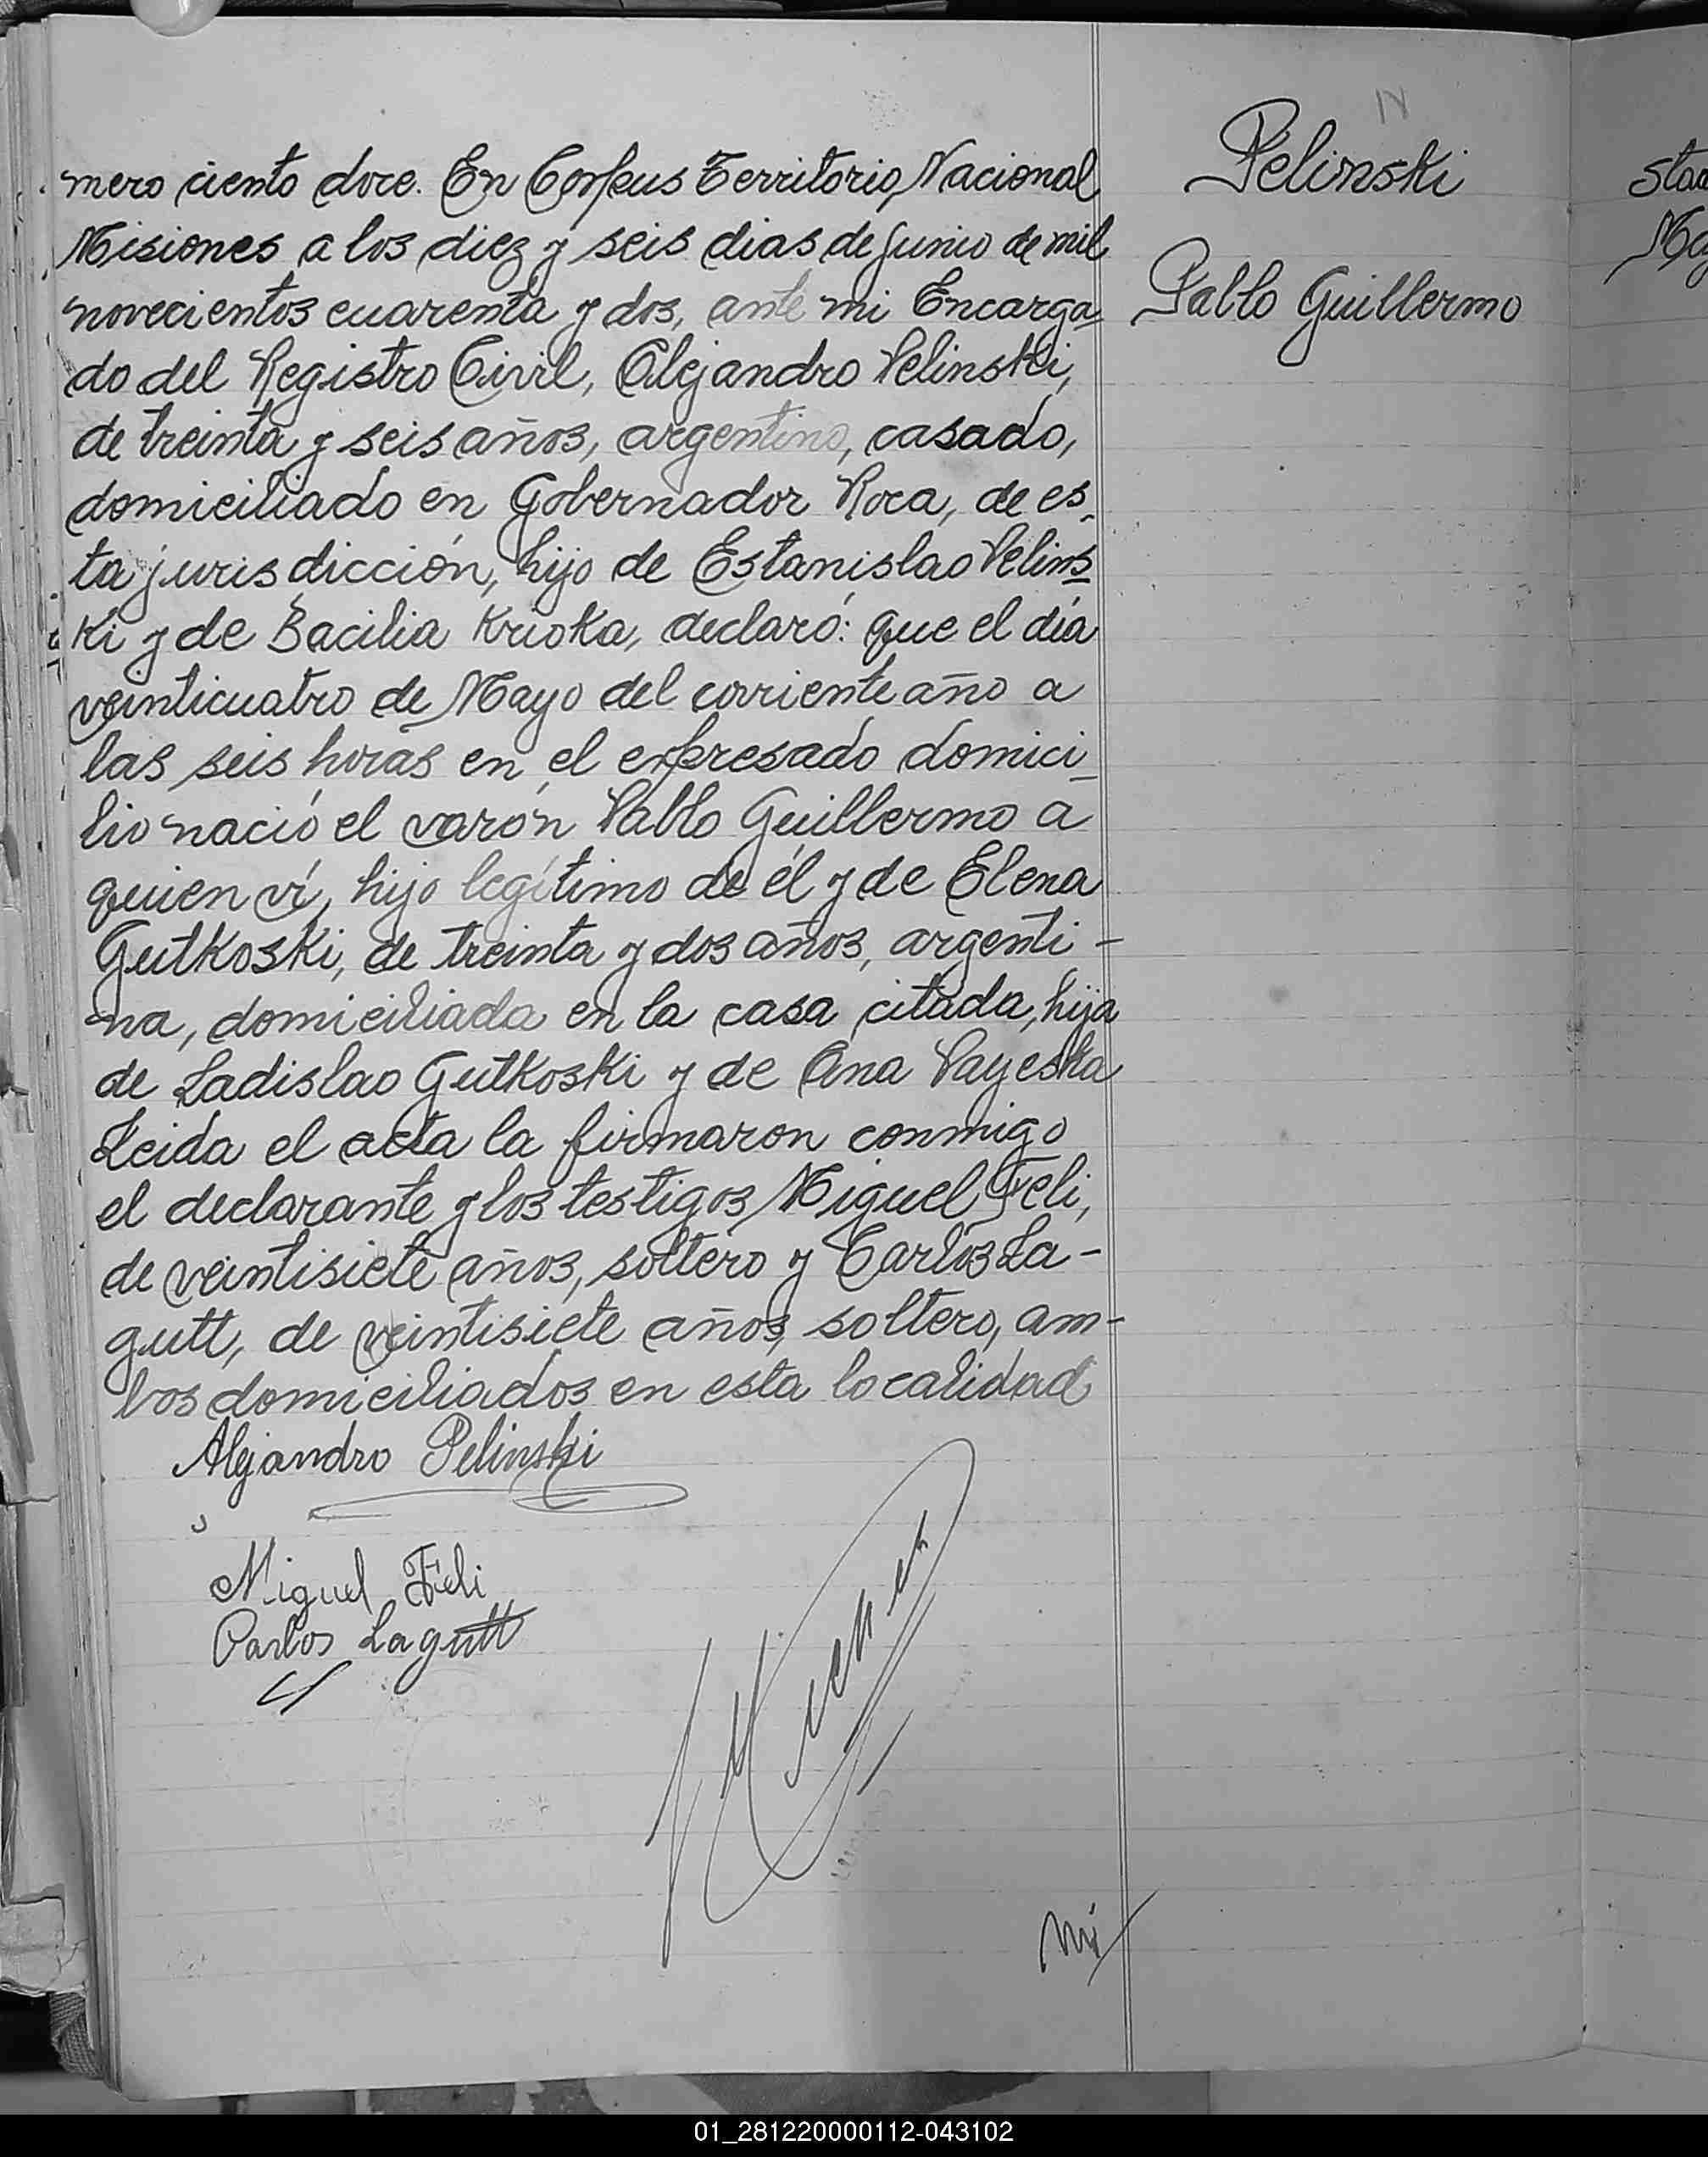 mero ciento doce. En Corpus Territorio Nacional
Misiones a los diez y seis dias de Junio de mil
novecientos cuarenta y dos, ante mi Encarga
do del Registro Civil, Alejandro Pelinski,
de treinta y seis años, argentino, casado,
domiciliado en Gobernador Roca, de es-
ta jurisdicción, hijo de Estanislao Pelins-
Ki y de Bacilia Krioka, declaró: que el día
veinticuatro de Mayo del corriente año a
las seis horas en el expresado domici-
lio nació el varón Pablo Guillermo a
quien ví, hijo legítimo de él y de Elena
Gutkoski, de treinta y dos años, argenti-
na, domiciliada en la casa citada, hija
de Ladislao Gutkoski y de Ana Payeska
Leida el acta la firmaron conmigo
el declarante y los testigos Miguel Feli,
de veintisiete años, soltero y Carlos La-
gutt, de veintisiete años, soltero, am-
bos domiciliados en esta localidad
Alejandro Pelinski
Miguel Feli
Carlos Lagutt
Pelinski
Pablo Guillermo
01_281220000112-043102